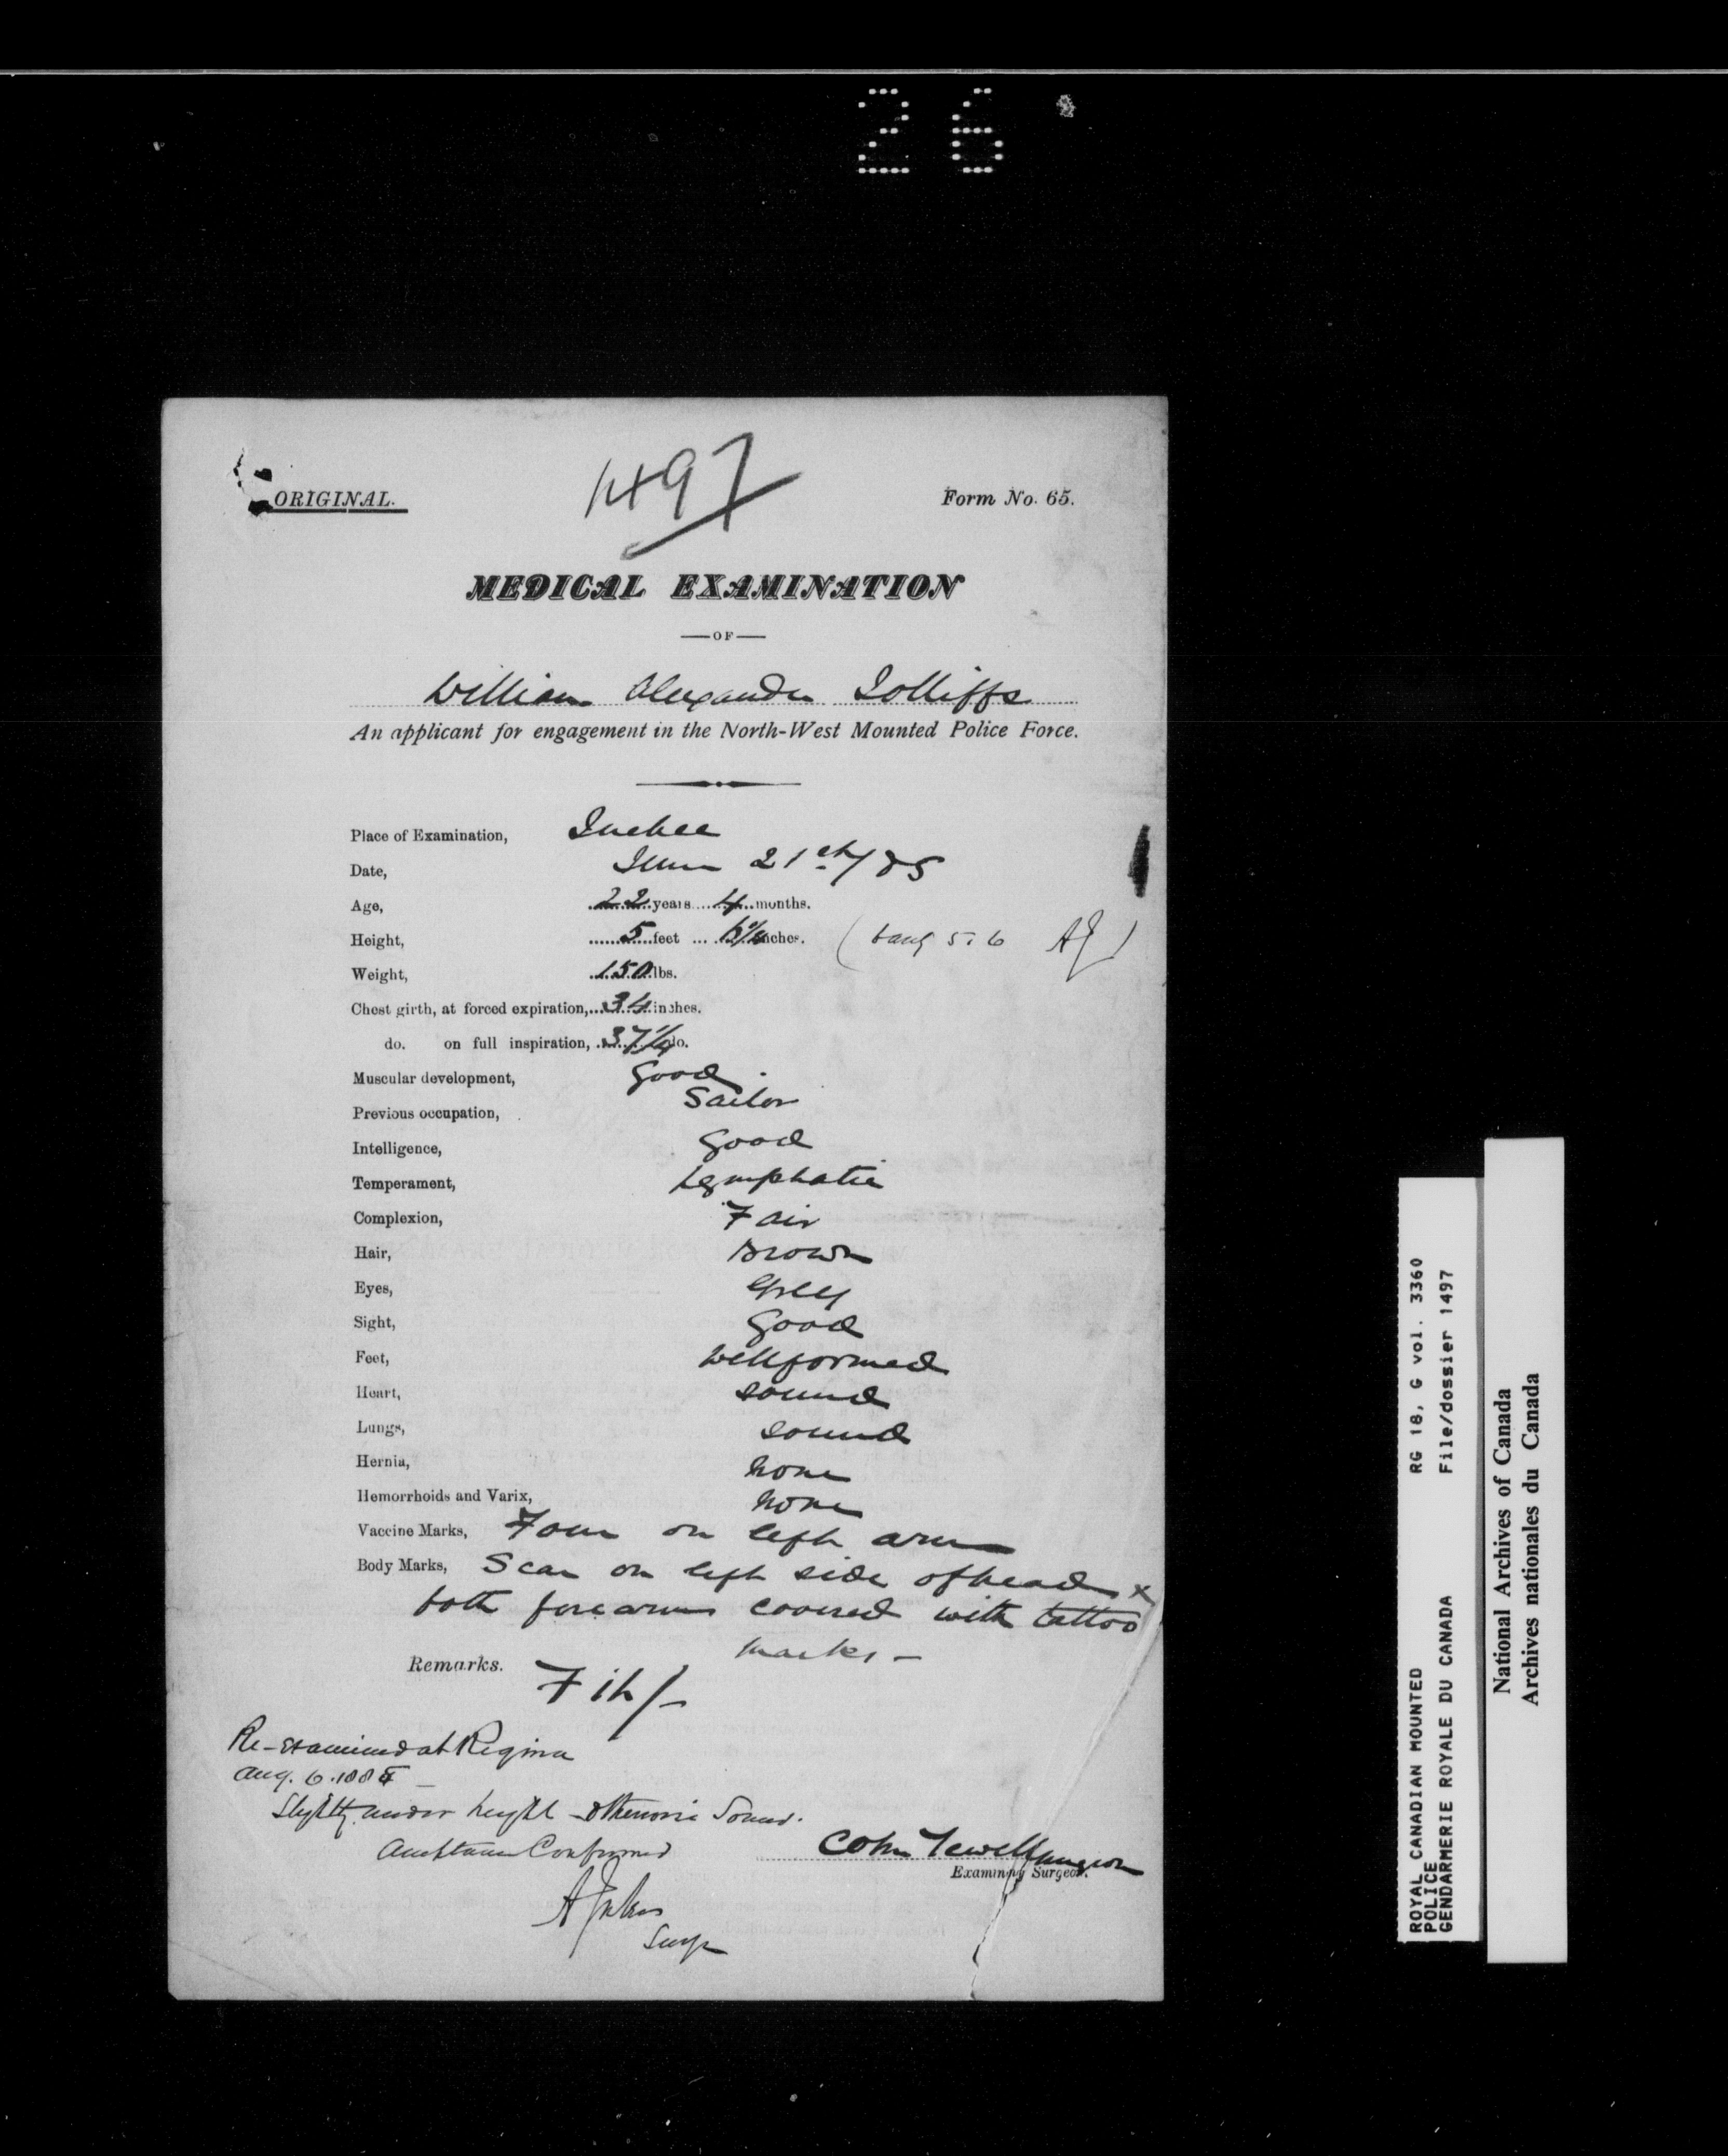 26
ORIGINAL.
1497
Form No. 65.
MEDICAL EXAMINATION
—OF—
William Alexander Jolliffe
An applicant for engagement in the North-West Mounted Police Force.
Place of Examination, Quebec
Date, June 21st/85
Age, 22 years 4 months.
Height, 5 feet 6 1/4 inches. ( 5.6 AJ )
Weight, 150 lbs.
Chest girth, at forced expiration, 34 inches.
do. on full inspiration, 37 1/4 do.
Muscular development, Good
Previous occupation, Sailor
Intelligence, Good
Temperament, Lymphatic
Complexion, Fair
Hair, Brown
Eyes, Grey
Sight, Good
Feet, Wellformed
Heart, sound
Lungs, sound
Hernia, none
Hemorrhoids and Varix, none
Vaccine Marks, Four on left arm
Body Marks, Scar on left side of head x
both forearms covered with tattoo
marks –
Remarks. Fit/-
Re-examined at Regina
Aug. 6. 1885 –
Slightly under height – otherwise Sound.
Confirmed
Colin Sewell Surgeon
Examining Surgeon.
A Jukes
Surgn
ROYAL CANADIAN MOUNTED RG 18, G vol. 3360
POLICE
GENDARMERIE ROYALE DU CANADA File/dossier 1497
National Archives of Canada
Archives nationales du Canada